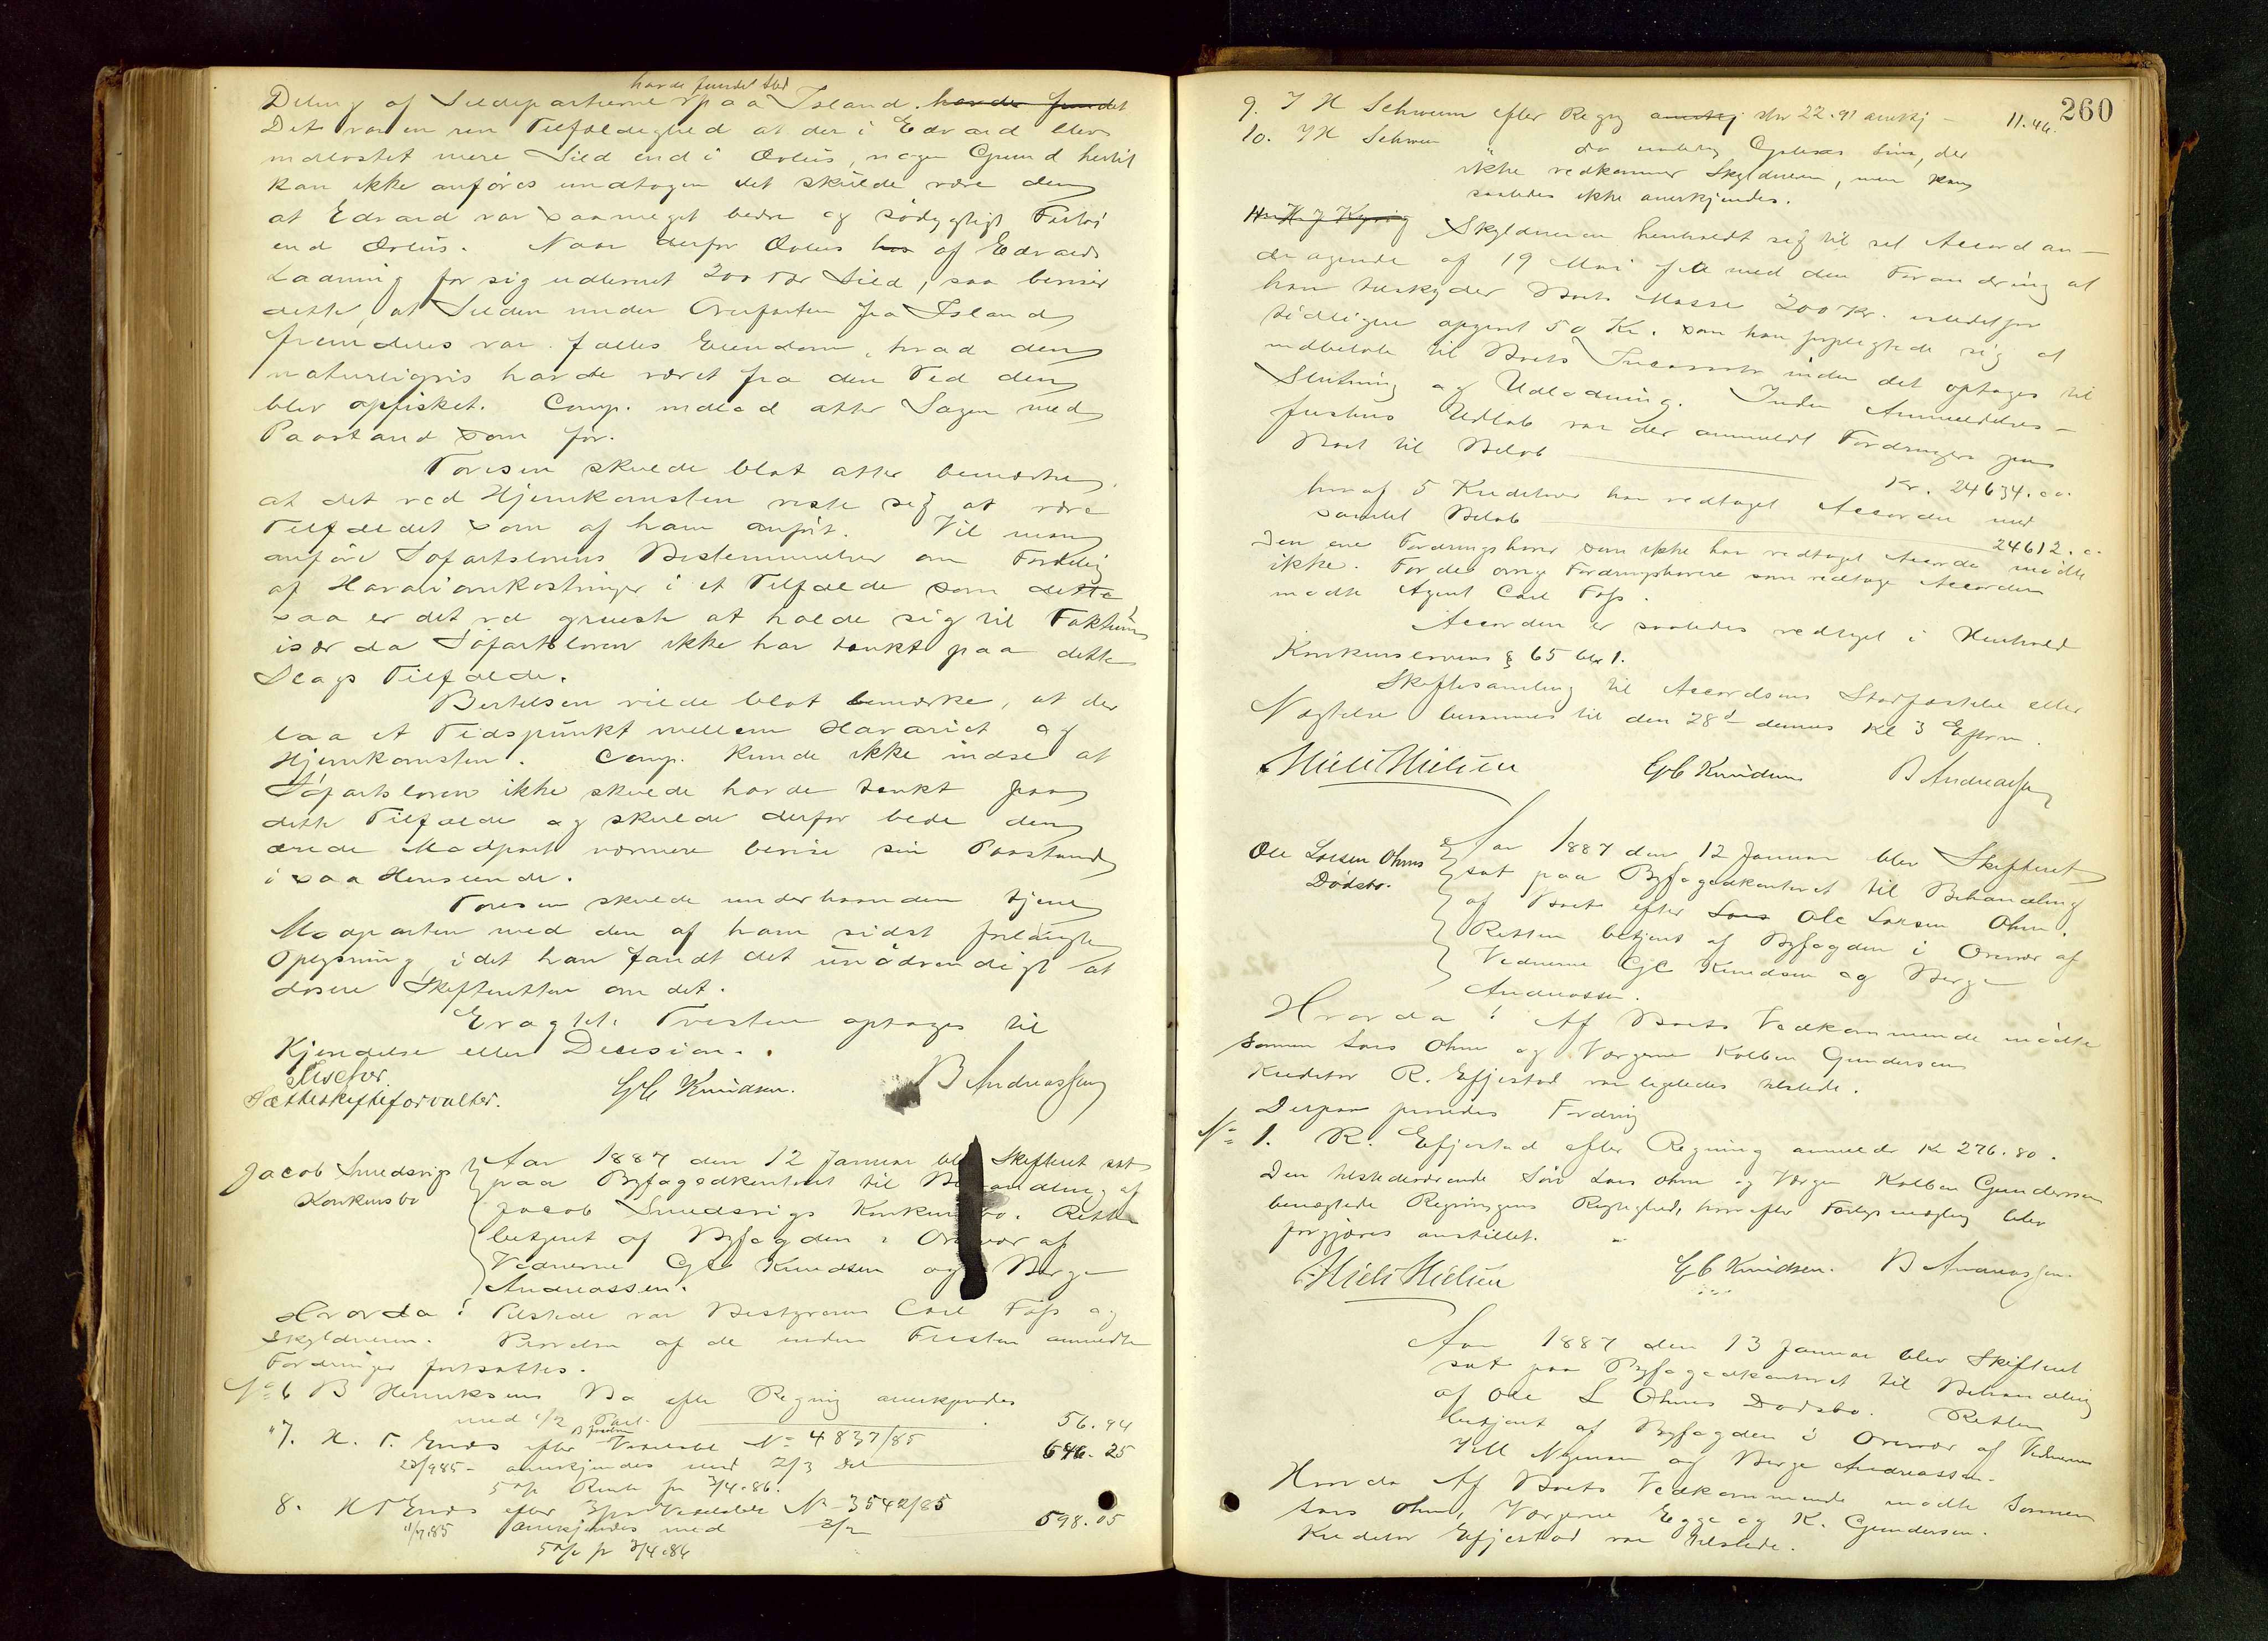 havde fundet Sted
Deling af Sildepartierne paa Island. havde fundet
Det var en ren Tilfældighed at der i Edvard blev
indlastet mere Sild end i Ovlius, nogen Grund hertil
kan ikke anføres undtagen det skulde være den
at Edvard var saameget bedre og sødygtigt Fartøi
end Ovlius. Naar derfor Ovlius har af Edvards
Ladning for sig udlevert 200 Tdr Sild, saa beviser
dette, at Silden under Overfarten fra Island
fremdeles var fælles Eiendom, hvad den
naturligvis havde været fra den Tid den
blev opfisket. Comp. indlod atter Sagen med
Paastand som før.
Toresen skulde blot atter bemærke,
at det ved Hjemkomsten viste sig at være
Tilfældet som af ham anført. Vil man
anføre Søfartslovens Bestemmelser om Fordeling
af Havariomkostninger i et Tilfælde som dette
saa er det vel greiest at holde sig til Faktum
især da Søfartsloven ikke har tænkt paa dette
Slags Tilfælde.
Bertelsen vilde blot bemærke, at der
laa et Tidspunkt mellem Havariet og
Hjemkomsten. Comp. kunde ikke indse at
Søfartsloven ikke skulde havde tænkt paa
dette Tilfælde og skulde derfor bede den
ærede Modpart nærmere bevise sin Paastand
i saa Henseende.
Toresen skulde underhaanden tjene
Modparten med den af ham sidst forlangte
Oplysning, idet han fandt det unødvendigt at
docere Skifteretten om det.
Eragtet: Tvisten optages til
Kjendelse eller Decision.
Sætteskifteforvalter.
GC Knudsen.
B Andreassen
Jacob Smedsvigs
Konkursbo
Aar 1887 den 12 Januar blev Skifteret sat
paa Byfogedkontoret til Behandling af
Jacob Smedsvigs Konkursbo. Retten
betjent af Byfogden i Overvær af
Vidnerne GC Knudsen og Berge
Andreassen.
Hvorda! Tilstede var Bestyreren Carl Foss og
Skyldneren. Prøvelsen af de inden Fristen anmeldte
Fordringer fortsattes.
No 6 B Henriksens Bo efter Regning anerkjendes
med 1/2 Part. 56.94
" 7. H. T. Enes efter Vexelobl No 4837/85
22/9 85 - anerkjendes med 2/3 Del 646.25
5 % Rente fra 3/4.86.
8. H T Enes efter Vexelobl No 3542/85
11/7.85 anerkjendes med 2/3 598.05
5 % fr 3/4.86
260
9. J H Schwenn efter Regng anerkj Kr 22.91 anerkj - 11.46.
10. J H Schwenn Do
ikke vedkommer Skyldneren, men kan
saaledes ikke anerkjendes.
11. H. J Kyvig Skyldneren henholdt sig til sit Accordan-
dragende af 19 Mai f A med den Forandring at
han tilskyder Boets Masse 200 Kr. istedetfor
tidligere opgivet 50 Kr. som han forpligtede sig at
indbetale til Boets Incassator inden det optages til
Slutning og Udlodning. Inden Anmeldelses-
fristens Udløb var der anmeldt Fordringer paa
Boet til Beløb Kr. 24634.00.
hvoraf 5 Kreditorer har vedtaget Accorden med
samlet Beløb 24612.00
Den ene Fordringshaver som ikke har vedtaget Accorden mødte
ikke. For de øvrige Fordringshavere som vedtage Accorden
mødte Agent Carl Foss.
Accorden er saaledes vedtaget i Henhold
Konkurslovens § 65 No 1.
Skiftesamling til Accordens Stadfæstelse eller
Nægtelse berammes til den 28d dennes Kl 3 Efterm.
Niels Nielsen
GC Knudsen
B Andreassen
Ole Larsen Ohms
Dødsbo.
Aar 1887 den 12 Januar blev Skifteret
sat paa Byfogedkontoret til Behandling
af Boet efter Lars Ole Larsen Ohm.
Retten betjent af Byfogden i Overvær af
Vidnerne GC Knudsen og Berge
Andreassen.
Hvorda! Af Boets Vedkommende mødte
Sønnen Lars Ohm og Værgerne Kolben Gundersen
Kreditor R. Efjestad var ligeledes tilstede.
Derpaa prøvedes Fordring
No 1. R. Efjestad efter Regning anmeldt Kr 276.80.
Den tilstedeværende Søn Lars Ohm og Værgen Kolben Gundersen
benægtede Regningens Rigtighed, hvorefter Forligsmægling blev
forgjæves anstillet.
Niels Nielsen
GC Knudsen.
B Andreassen.
Aar 1887 den 13 Januar blev Skifteret
sat paa Byfogedkontoret til Behandling
af Ole L Ohms Dødsbo. Retten
betjent af Byfogden i Overvær af Vidnerne
Nyman og Berge Andreassen.
Hvorda Af Boets Vedkommende mødte Sønnen
Lars Ohm, Værgerne Egge og K. Gundersen.
Kreditor Efjestad var tilstede.